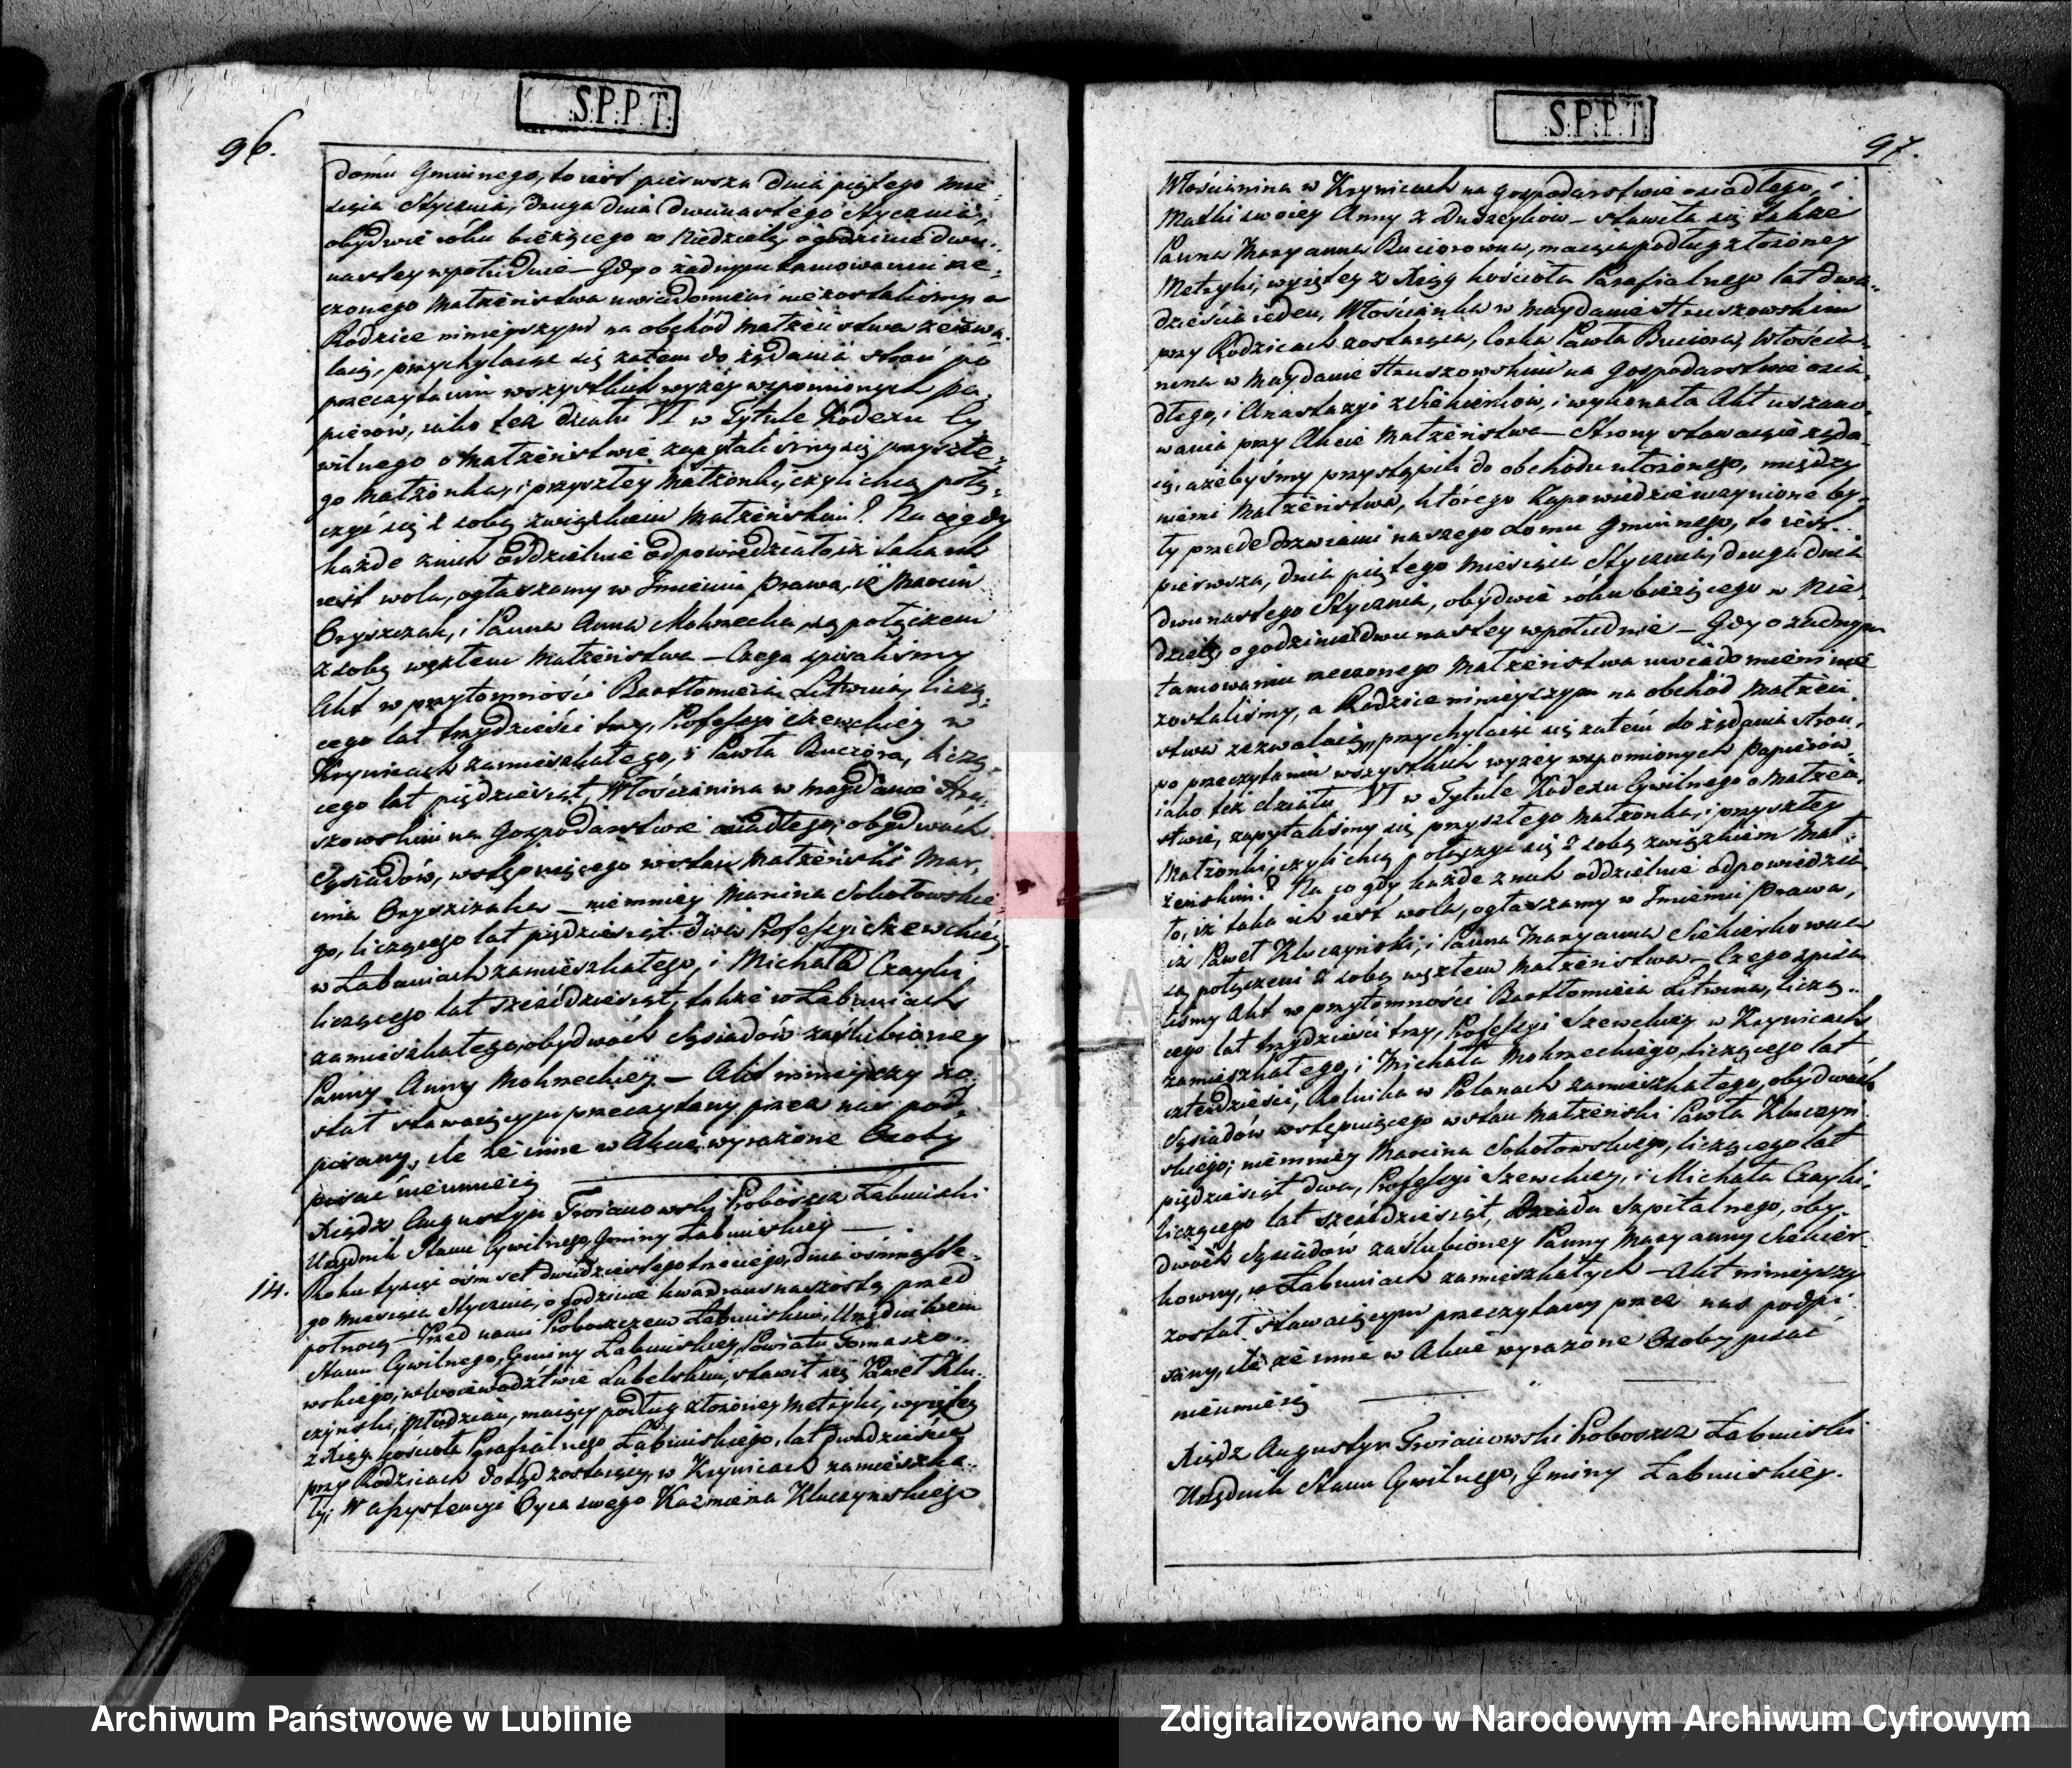 S.P.P.T.
96.
domu Gminnego, to iest pierwsza dnia piątego mie-
siąca Stycznia, druga dnia dwunastego Stycznia,
obydwie roku bieżącego w Niedzielę, o godzinie dwu-
nastey wpołudnie – Gdy o żadnym tamowaniu rze-
czonego Małżeństwa uwiadomieni niezostaliśmy a
Rodzice ninieyszym na obchód Małżeństwa zezwa-
laią, przychylaiąc się zatem do żądania stron po
przeczytaniu wszystkich wyżey wspomionych pa-
pierów, iako też działu VI w Tytule Kodexu Cy-
wilnego o Małżeństwie zapytaliśmy się przyszłe-
go Małżonka, i przyszłey Małżonki, czyli chcą połą-
czyć się z sobą związkiem Małżeńskim? Na co gdy
każde znich oddzielnie odpowiedziało iż taka ich
iest wola, ogłaszamy w Imieniu Prawa, iż Marcin
Gryszczak, i Panna Anna Mokrzecka są połączeni
z sobą węzłem Małżeństwa – Czego spisaliśmy
Akt w przytomności Bartłomieia Litwina, liczą-
cego lat trzydzieści trzy, Professyi szewckiey w
Krynicach zamieszkałego, i Pawła Buczora, liczą-
cego lat piędziesiąt, Włościanina w Maydanie Hru-
szowskim na Gospodarstwie osiadłego, obydwóch
Sąsiadów, wstępuiącego wstan Małżeński Mar-
cina Gryszczaka – niemniey Marcina Sokołowskie-
go, liczącego lat pięddziesiąt dwa Professyi Szewckiey
w Łabuniach zamieszkałego, i Michała Czayki
liczącego lat sześćdziesiąt, także w Łabuniach
zamieszkałego, obydwóch Sąsiadów zaślubioney
Panny Anny Mokrzeckiey – Akt ninieyszy zo-
stał stawaiącym przeczytany, przez nas pod-
pisany, ile że inne w Akcie wyrażone Osoby
pisać nieumieią
Xiądz Augustyn Troianowski Proboszcz Łabuński
Urzędnik Stanu Cywilnego, Gminy Łabuńskiey
14.
Roku tysiąc ośmset dwudziestego trzeciego, dnia ośmnaste-
go miesiąca Stycznia, o godzinie kwadrans na szóstą przed
północą – Przed nami Proboszczem Łabuńskim, Urzędnikiem
Stanu Cywilnego, Gminy Łabuńskiey, Powiatu Tomaszo-
wskiego, w Woiewództwie Lubelskim, stawił się Paweł Klu-
czyński, Młodzian, maiący podług złożoney Metryki, wyiętey
z Xiąg kościoła Parafialnego Łabuńskiego, lat dwadzieścia
przy Rodzicach dotąd zostaiący, w Krynicach zamieszka-
ły; W assystencyi Oyca swego Kazmierza Kluczyńskiego
S.P.P.T.
97.
Włościanina w Krynicach na gospodarstwie osiadłego, i
Matki swoiey Anny z Duszeyków – stawiła się także
Panna Maryanna Buciorowna, maiąca podług złożoney
Metryki, wyiętey z Xiąg kościoła Parafialnego lat dwa-
dzieścia ieden, Włościanka w Maydanie Hruszowskim
przy Rodzicach zostaiąca, Corka Pawła Buciora, Włościa-
nina w Maydanie Hruszowskim na gospodarstwie osia-
dłego, i Anastazyi z Siekierków, i wykonała Akt uszano-
wania przy Akcie Małżeństwa – Strony stawaiące żąda-
ią, ażebyśmy przystąpili do obchodu ułożonego, między
niemi Małżeństwa, którego Zapowiedzie uczynione by-
ły przede drzwiami naszego domu Gminnego, to iest
pierwsza, dnia piątego Miesiąca Stycznia, druga dnia
dwunastego Stycznia, obydwie roku bieżącego w Nie-
dzielę, o godzinie dwunastey wpołudnie – Gdy o żadnym
tamowaniu rzeczonego Małżeństwa uwiadomieni nie
zostaliśmy, a Rodzice ninieyszym na obchód Małżeń-
stwa zezwalaią, przychylaiąc się zatem do żądania stron,
po przeczytaniu wszystkich wyżey wspomionych Papierów,
iako też działu VI w Tytule Kodexu Cywilnego o Małżeń-
stwie, zapytaliśmy się przyszłego Małżonka, i przyszłey
Małżonki, czyli chcą połączyć się z sobą związkiem Mał-
żeńskim? Na co gdy każde znich oddzielnie odpowiedzia-
ło, iż taka ich iest wola, ogłaszamy w Imieniu Prawa,
iż Paweł Kluczyński, i Panna Maryanna Siekierkowna
są połączeni z sobą węzłem Małżeństwa – Czego spisa-
liśmy Akt w przytomności Bartłomieia Litwina, liczą-
cego lat trzydzieści trzy, Professyi Szewckiey w Krynicach
zamieszkałego, i Michała Mokrzeckiego, liczącego lat
czterdzieści, Rolnika w Polanach zamieszkałego, obydwóch
Sąsiadów wstępuiącego wstan Małżeński Pawła Kluczyń-
skiego; niemniey Marcina Sokołowskiego, liczącego lat
pięddziesiąt dwa, Professyi Szewckiey, i Michała Czayki,
liczącego lat sześćdziesiąt, Dziada Szpitalnego, oby-
dwóch Sąsiadów zaślubioney Panny Maryanny Siekier-
kowny, w Łabuniach zamieszkałych – Akt ninieyszy
został stawaiącym przeczytany przez nas podpi-
sany, ile że inne w Akcie wyrażone Osoby pisać
nieumieią
Xiądz Augustyn Troianowski Proboszcz Łabuński
Urzędnik Stanu Cywilnego, Gminy Łabuńskiey.
Archiwum Państwowe w Lublinie
Zdigitalizowano w Narodowym Archiwum Cyfrowym